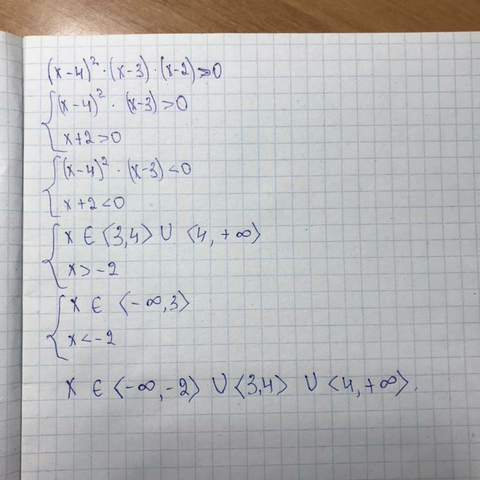 (x-4)² · (x-3) · (x-2) > 0
{ (x-4)² · (x-3) > 0
x+2 > 0
{ (x-4)² · (x-3) < 0
x+2 < 0
{ x ∈ ⟨3,4⟩ ∪ ⟨4, +∞⟩
x > -2
{ x ∈ ⟨-∞,3⟩
x < -2
x ∈ ⟨-∞,-2⟩ ∪ ⟨3,4⟩ ∪ ⟨4,+∞⟩.